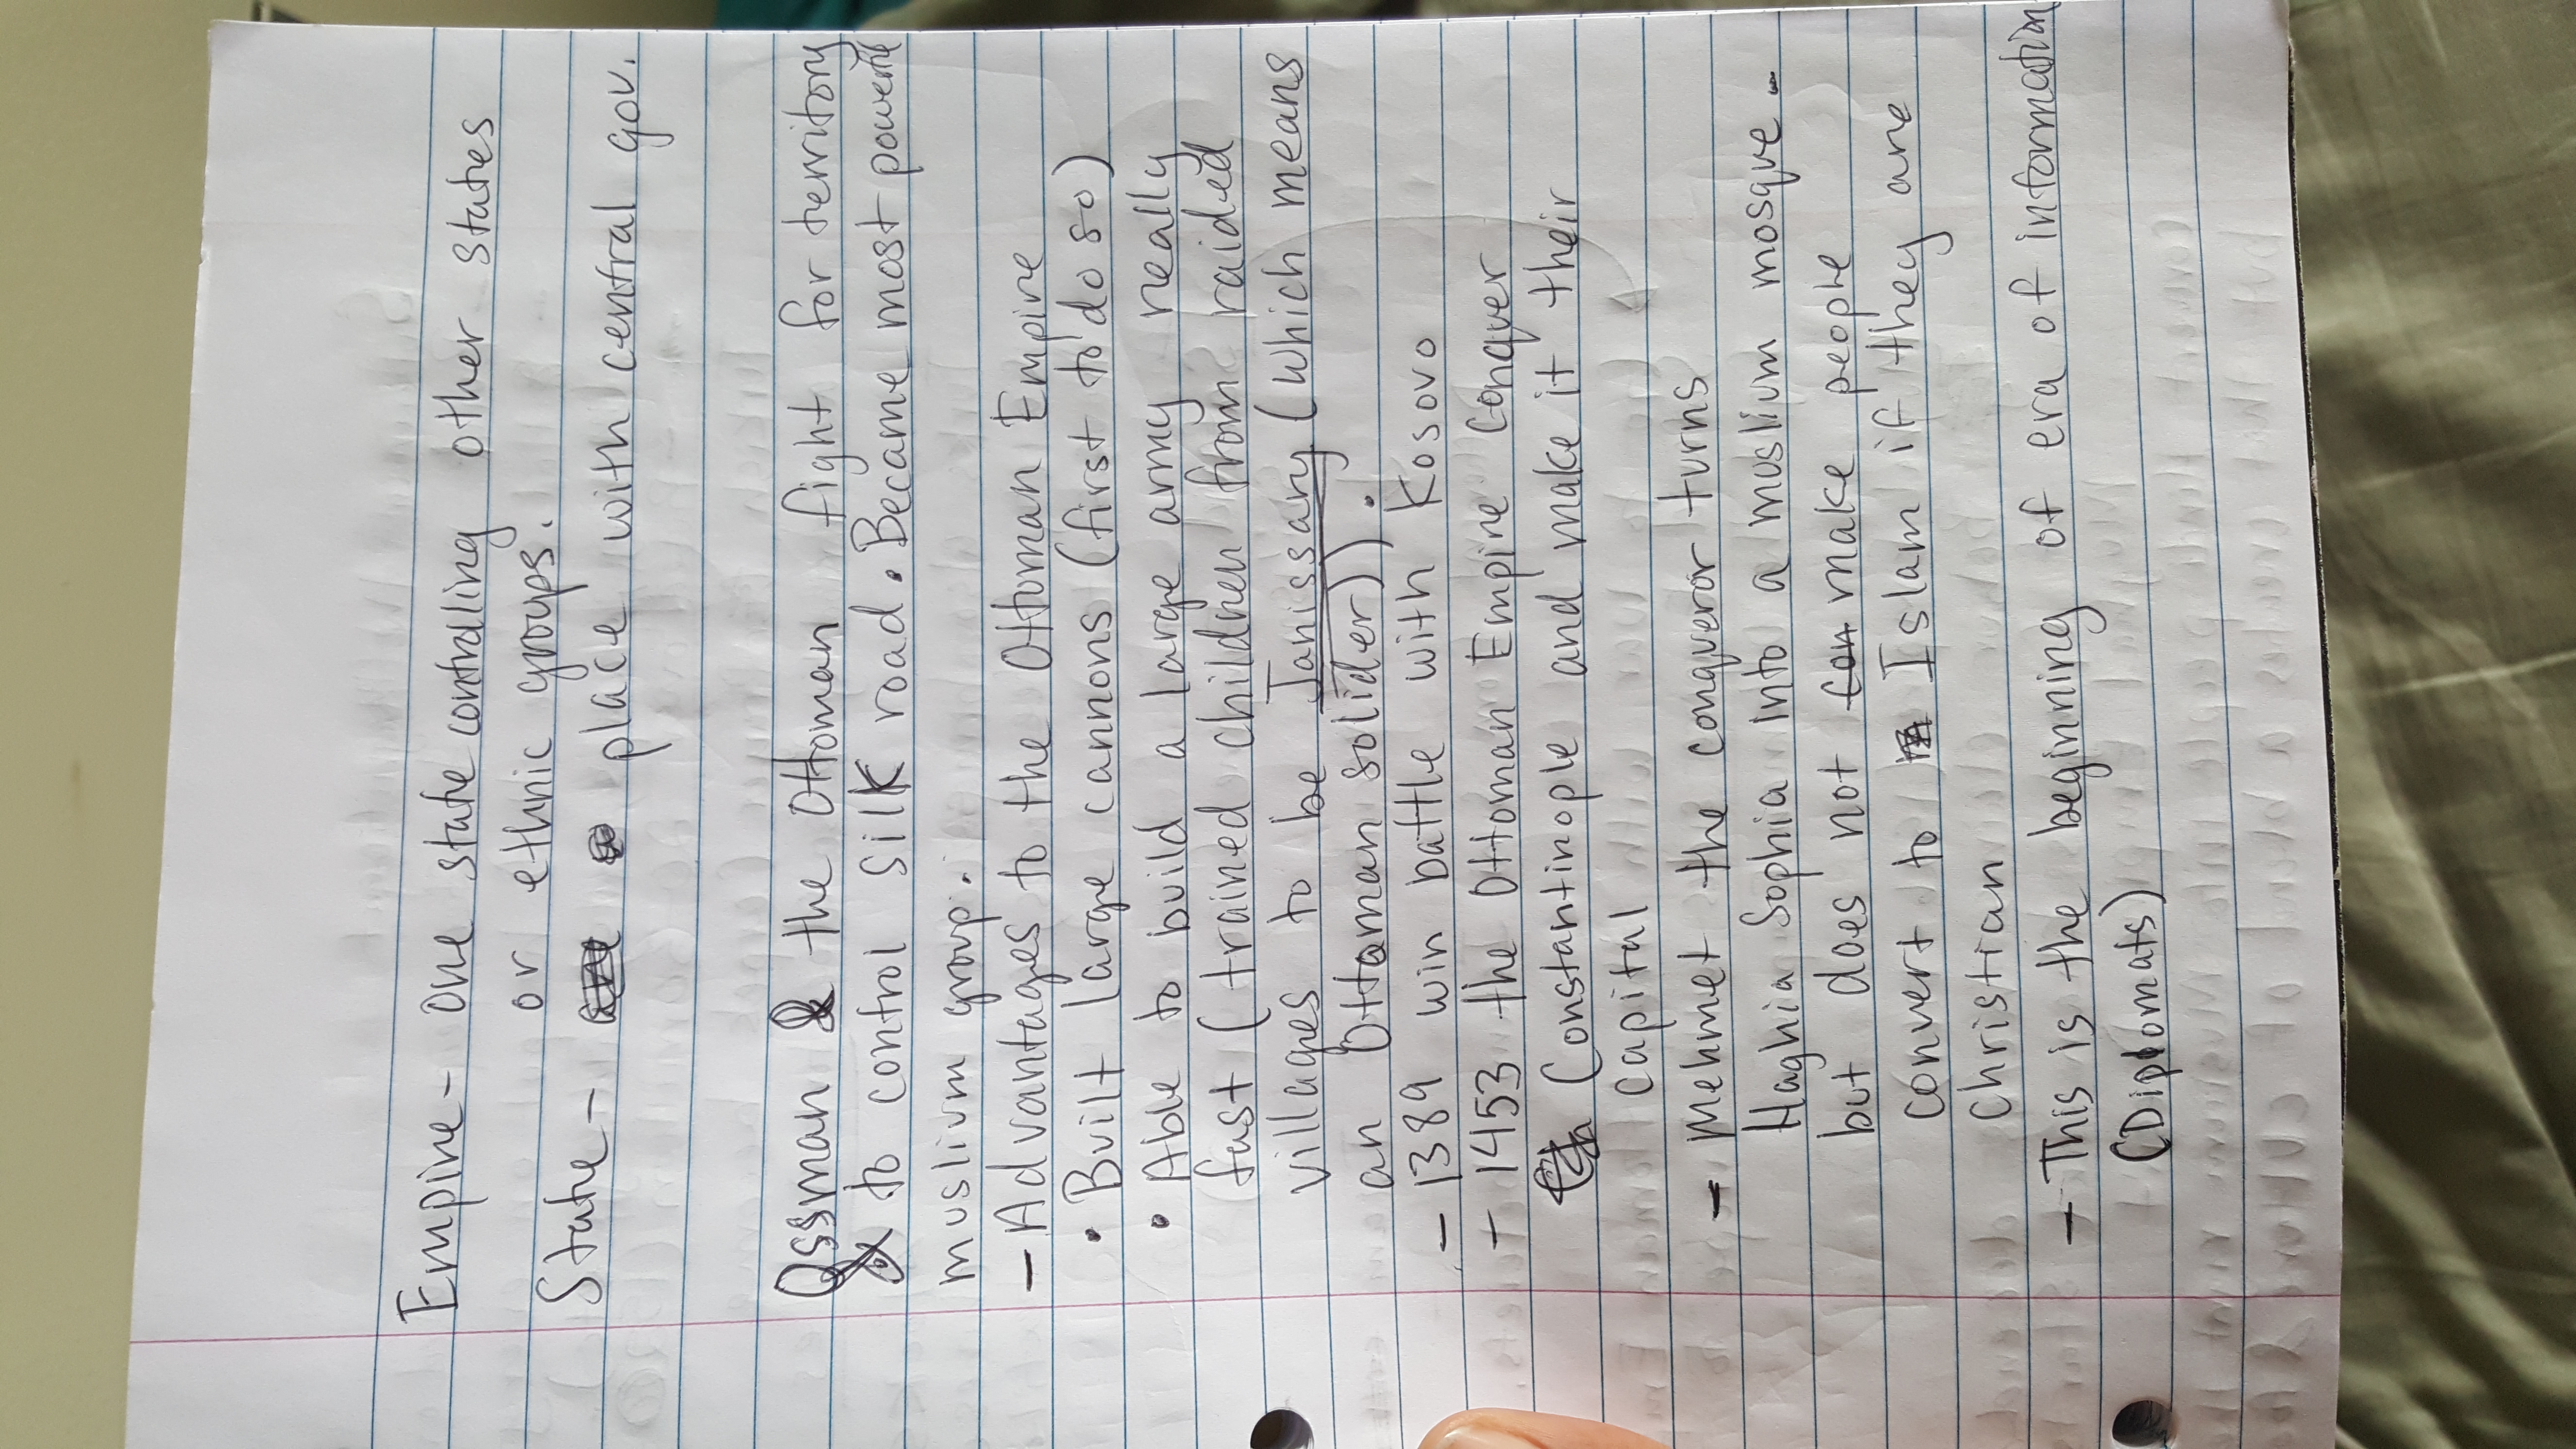 Empire - One state controlling other states
or ethnic groups.
State - place with central gov.
Ossman & the Ottoman fight for territory
to control silk road. Became most powerful
muslium group.
- Advantages to the Ottoman Empire
• Built large cannons (first to do so)
• Able to build a large army really
fast (trained children from raided
villages to be Janissary (which means
an Ottoman solider)).
- 1389 win battle with Kosovo
- 1453 the Ottoman Empire conquer
Constantinople and make it their
capital
- Mehmet the conqueror turns
Haghia Sophia into a muslium mosque.
but does not make people
convert to Islam if they are
Christian
- This is the beginning of era of information
(Diplomats)